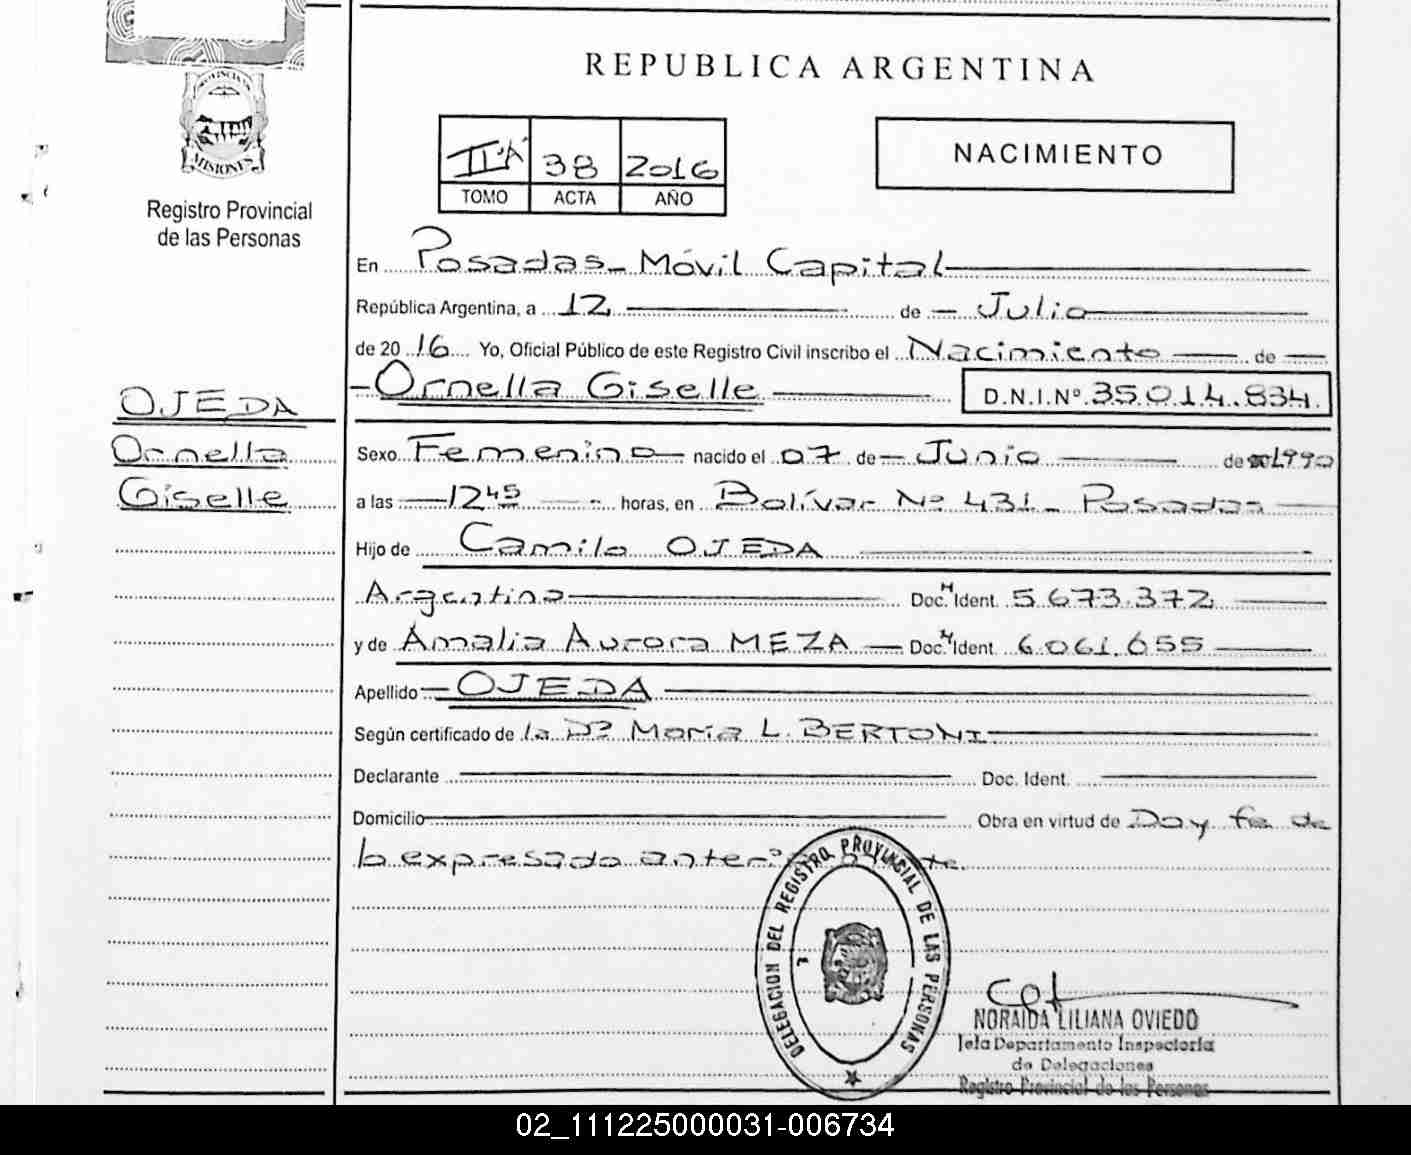 REPUBLICA ARGENTINA
PROVINCIA
MISIONES
Registro Provincial
de las Personas
II "A" 38 2016
TOMO ACTA AÑO
NACIMIENTO
En Posadas - Móvil Capital
República Argentina, a 12 de Julio
de 2016 Yo, Oficial Público de este Registro Civil inscribo el Nacimiento de
Ornella Giselle D.N.I.Nº 35.014.834
OJEDA
Ornella
Giselle
Sexo Femenino nacido el 07 de Junio de 1990
a las 12 45 horas, en Bolívar Nº 431 - Posadas
Hijo de Camilo OJEDA
Argentina Doc. Ident. 5.673.372
y de Amalia Aurora MEZA Doc. Ident. 6.061.655
Apellido OJEDA
Según certificado de la Dª María L. BERTONI
Declarante Doc. Ident.
Domicilio Obra en virtud de Doy fe de
lo expresado
DELEGACION DEL REGISTRO PROVINCIAL DE LAS PERSONAS
NORAIDA LILIANA OVIEDO
Jefa Departamento Inspectoría
de Delegaciones
Registro Provincial de las Personas
02_111225000031-006734